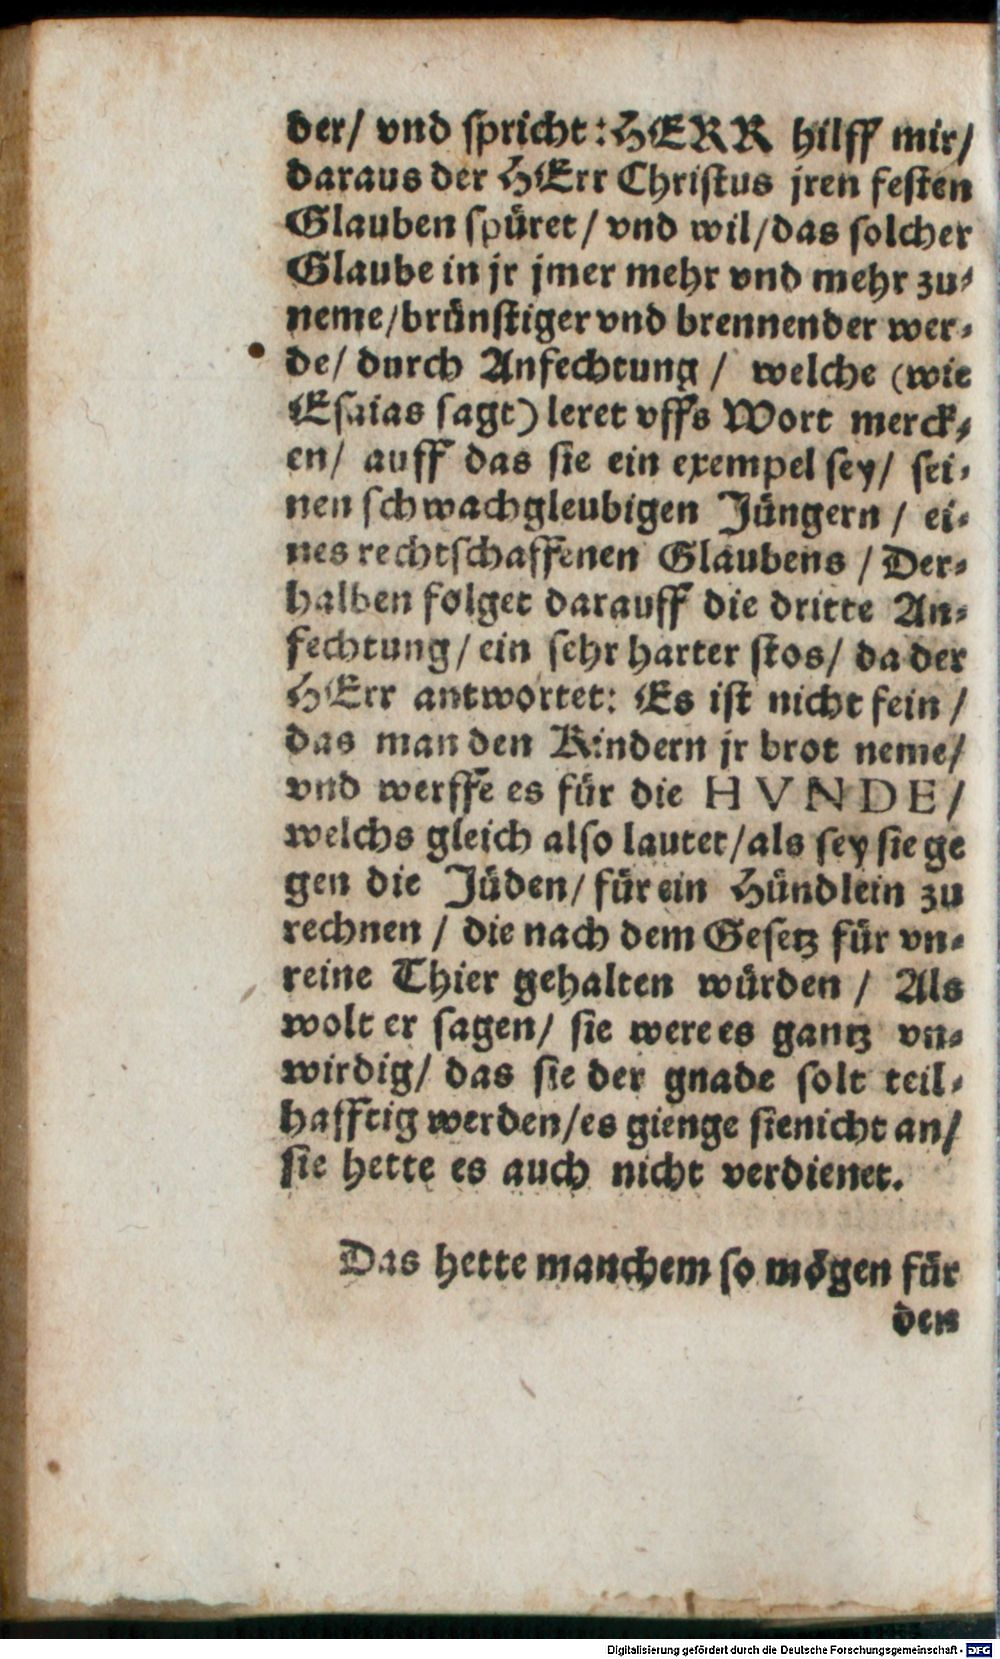 der/ vnd spricht: HERR hilff mir/
daraus der HErr Christus jren festen
Glauben spüret/ vnd wil/das solcher
Glaube in jr jmer mehr vnd mehr zu-
neme/brünstiger vnd brennender wer-
de/ durch Anfechtung/ welche (wie
Esaias sagt) leret vffs Wort merck-
en/ auff das sie ein exempel sey/ sei-
nen schwachgleubigen Jüngern/ ei-
nes rechtschaffenen Glaubens/ Der-
halben folget darauff die dritte An-
fechtung/ ein sehr harter stos/ da der
HErr antwortet: Es ist nicht fein/
das man den Kindern jr brot neme/
vnd werffe es für die HVNDE/
welchs gleich also lautet/als sey sie ge
gen die Jüden/ für ein Hündlein zu
rechnen/ die nach dem Gesetz für vn-
reine Thier gehalten würden/ Als
wolt er sagen/ sie were es gantz vn-
wirdig/ das sie der gnade solt teil-
hafftig werden/es gienge sie nicht an/
sie hette es auch nicht verdienet.
Das hette manchem so mögen für
den
Digitalisierung gefördert durch die Deutsche Forschungsgemeinschaft - DFG